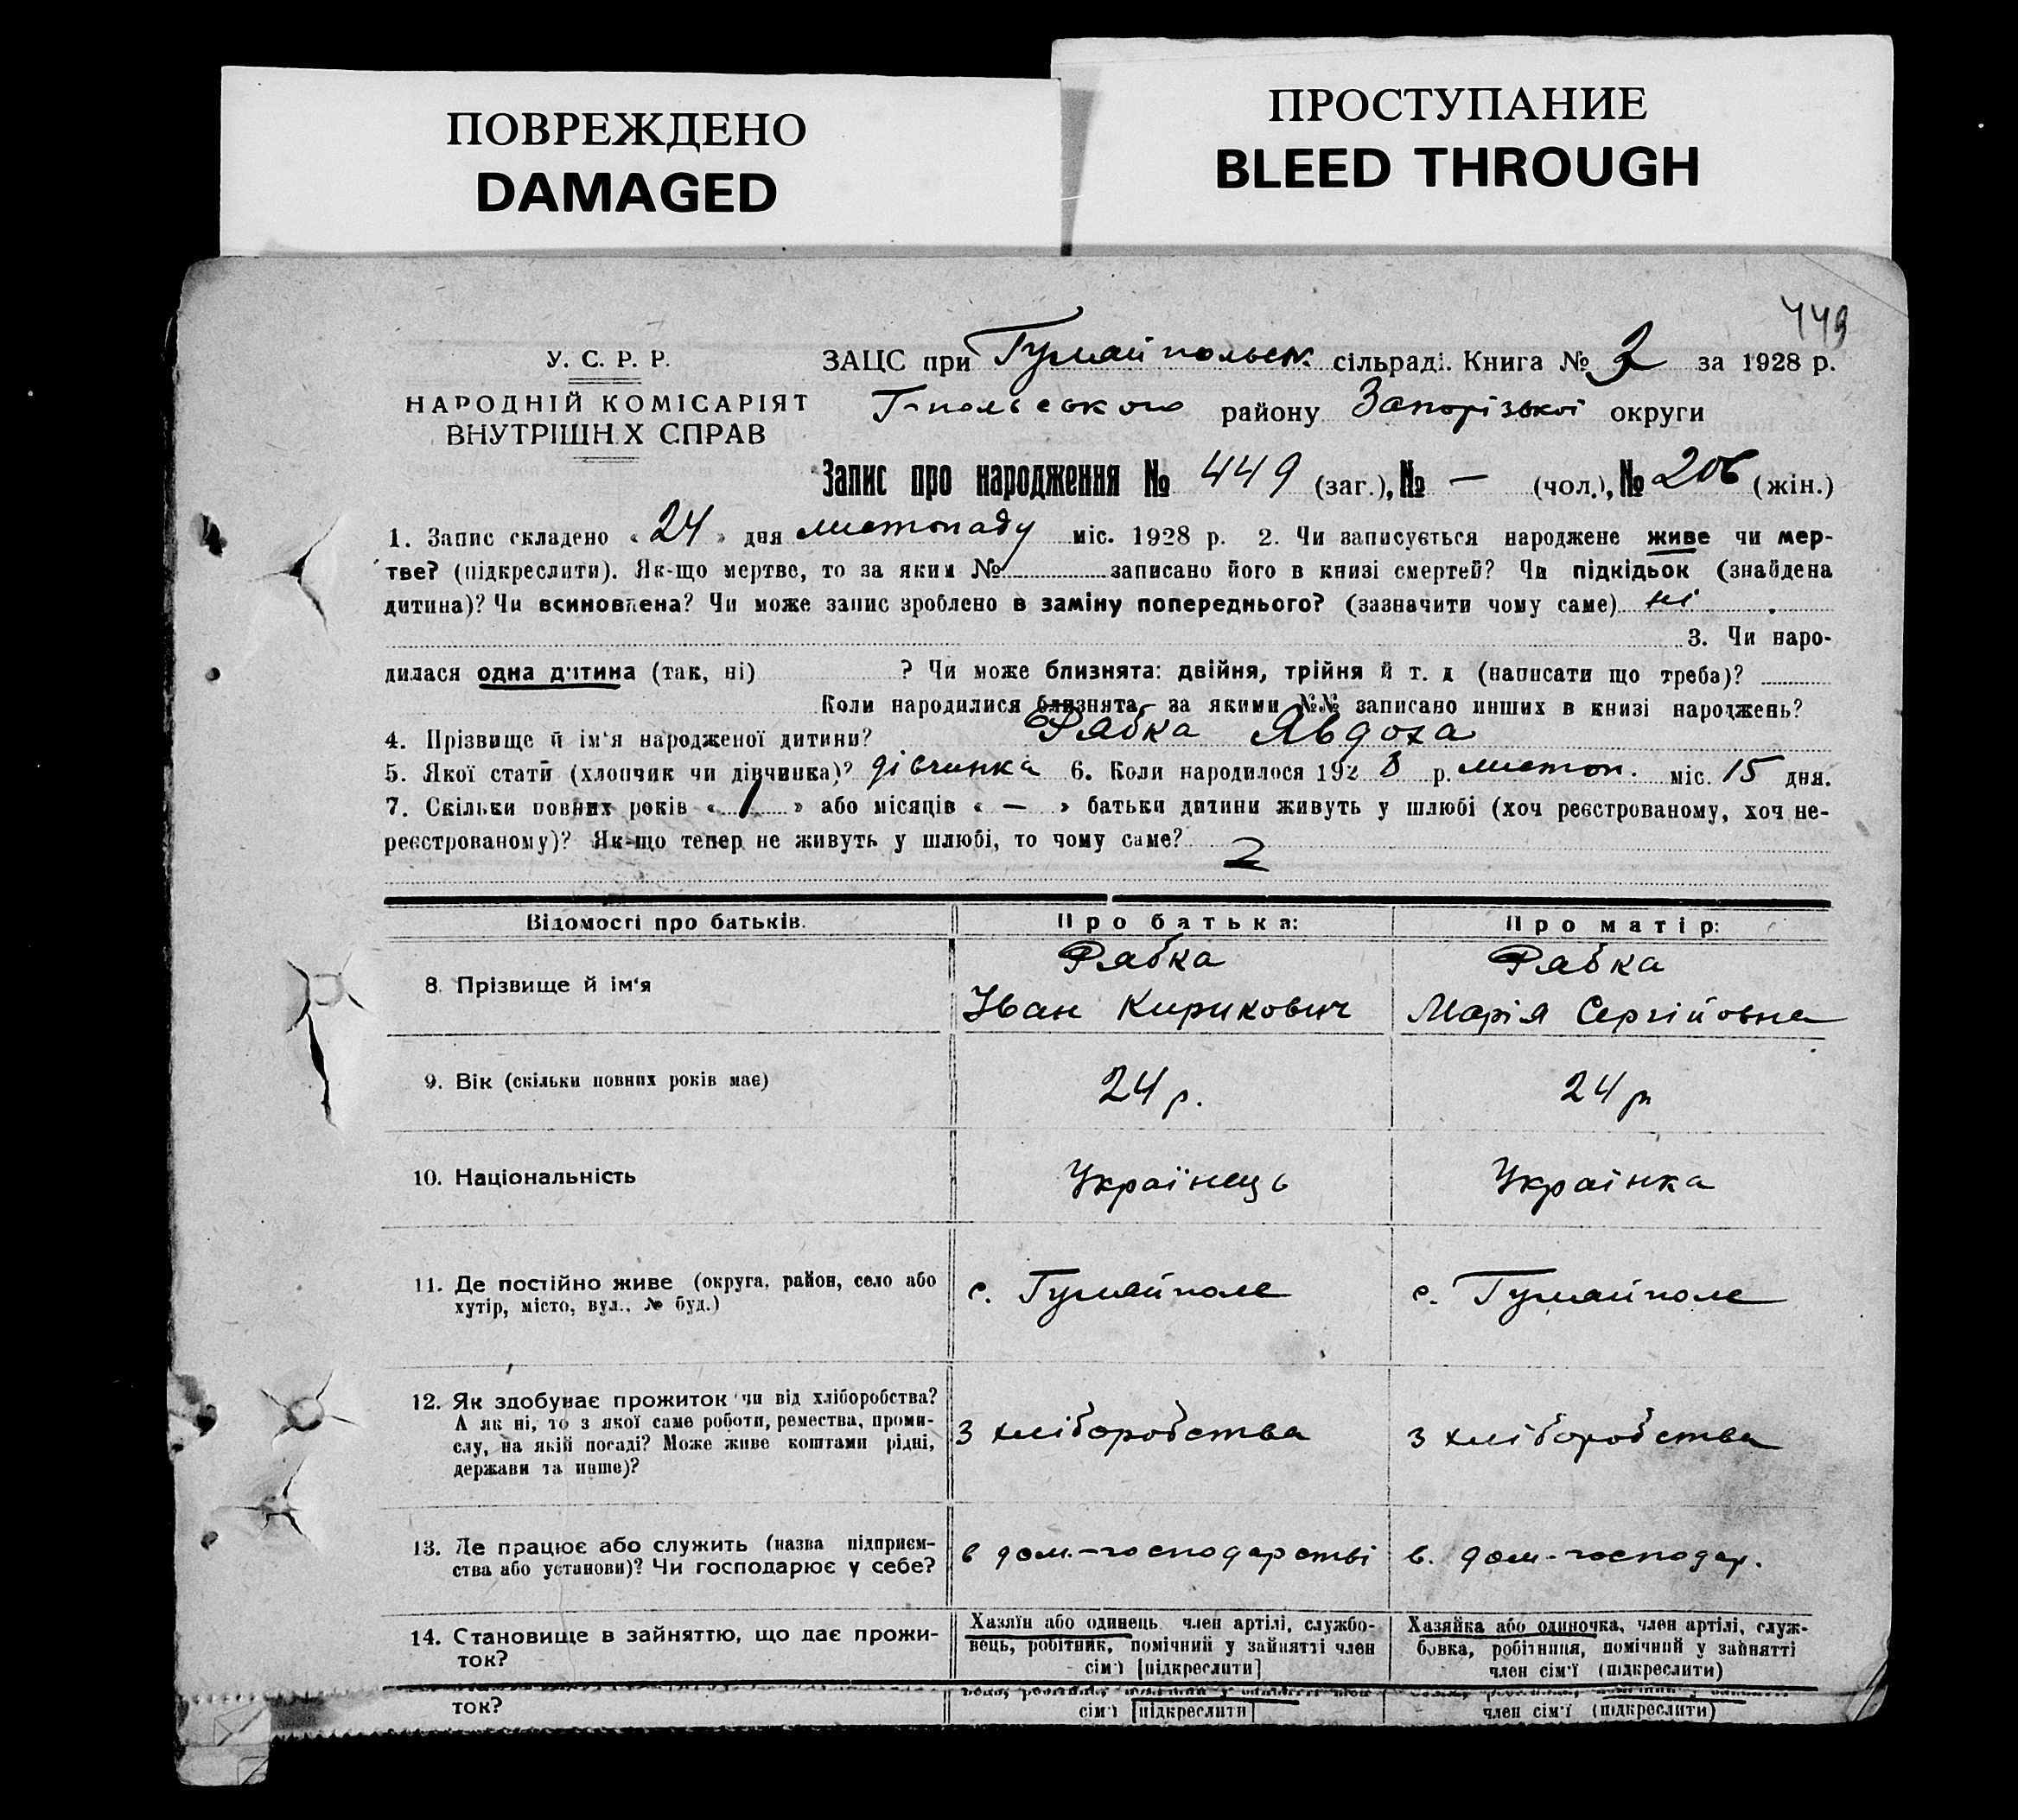 ПОВРЕЖДЕНО
DAMAGED
ПРОСТУПАНИЕ
BLEED THROUGH
449
У. С. Р. Р.
НАРОДНІЙ КОМІСАРІЯТ
ВНУТРІШН Х СПРАВ
ЗАЦС при Гуляйпольск. сільраді. Книга № 3 за 1928 р.
Г-польського району Запорізької округи
Запис про народження № 449 (заг.), № — (чол.), № 206 (жін.)
1. Запис складено « 24 » дня листопаду міс. 1928 р. 2. Чи записується народжене живе чи мер-
тве? (підкреслити). Як-що мертве, то за яким № записано його в книзі смертей? Чи підкідьок (знайдена
дитина)? Чи всиновлена? Чи може запис зроблено в заміну попереднього? (зазначити чому саме) ні
3. Чи наро-
дилася одна дитина (так, ні) ? Чи може близнята: двійня, трійня й т. д (написати що треба)?
Коли народилися близнята, за якими №№ записано инших в книзі народжень?
4. Прізвище й ім'я народженої дитини? Рябка Явдоха
5. Якої статі (хлопчик чи дівчинка)? дівчинка 6. Коли народилося 1928 р. листоп. міс. 15 дня.
7. Скільки повних років « 1 » або місяців « — » батьки дитини живуть у шлюбі (хоч реєстрованому, хоч не-
реєстрованому)? Як-що тепер не живуть у шлюбі, то чому саме?
2
Відомості про батьків. Про батька: Про матір:
8. Прізвище й ім'я Рябка Іван Кирикович Рябка Марія Сергійовна
9. Вік (скільки повних років має) 24 р. 24 р
10. Національність Українець Українка
11. Де постійно живе (округа, район, село або
хутір, місто, вул., № буд.) с. Гуляйполе с. Гуляйполе
12. Як здобуває прожиток чи від хліборобства?
А як ні, то з якої саме роботи, ремества, проми-
слу, на якій посаді? Може живе коштами рідні,
держави та инше)? З хліборобства з хліборобства
13. Де працює або служить (назва підприєм-
ства або установи)? Чи господарює у себе? в дом.-господарстві в. дом-господар.
14. Становище в зайняттю, що дає прожи-
ток?
Хазяїн або одинець член артілі, службо-
вець, робітник, помічний у зайнятті член
сім'ї [підкреслити]
Хазяйка або одиночка, член артілі, служ-
бовка, робітниця, помічний у зайнятті
член сім'ї (підкреслити)
ток? сім'ї [підкреслити] член сім'ї (підкреслити)